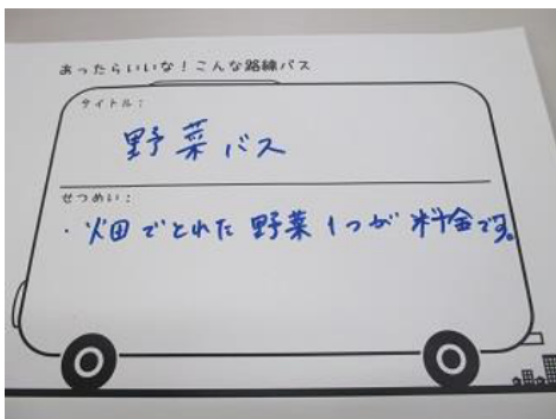 あったらいいな！こんな路線バス
タイトル：
野菜バス
せつめい：
・畑でとれた野菜1つが料金です。